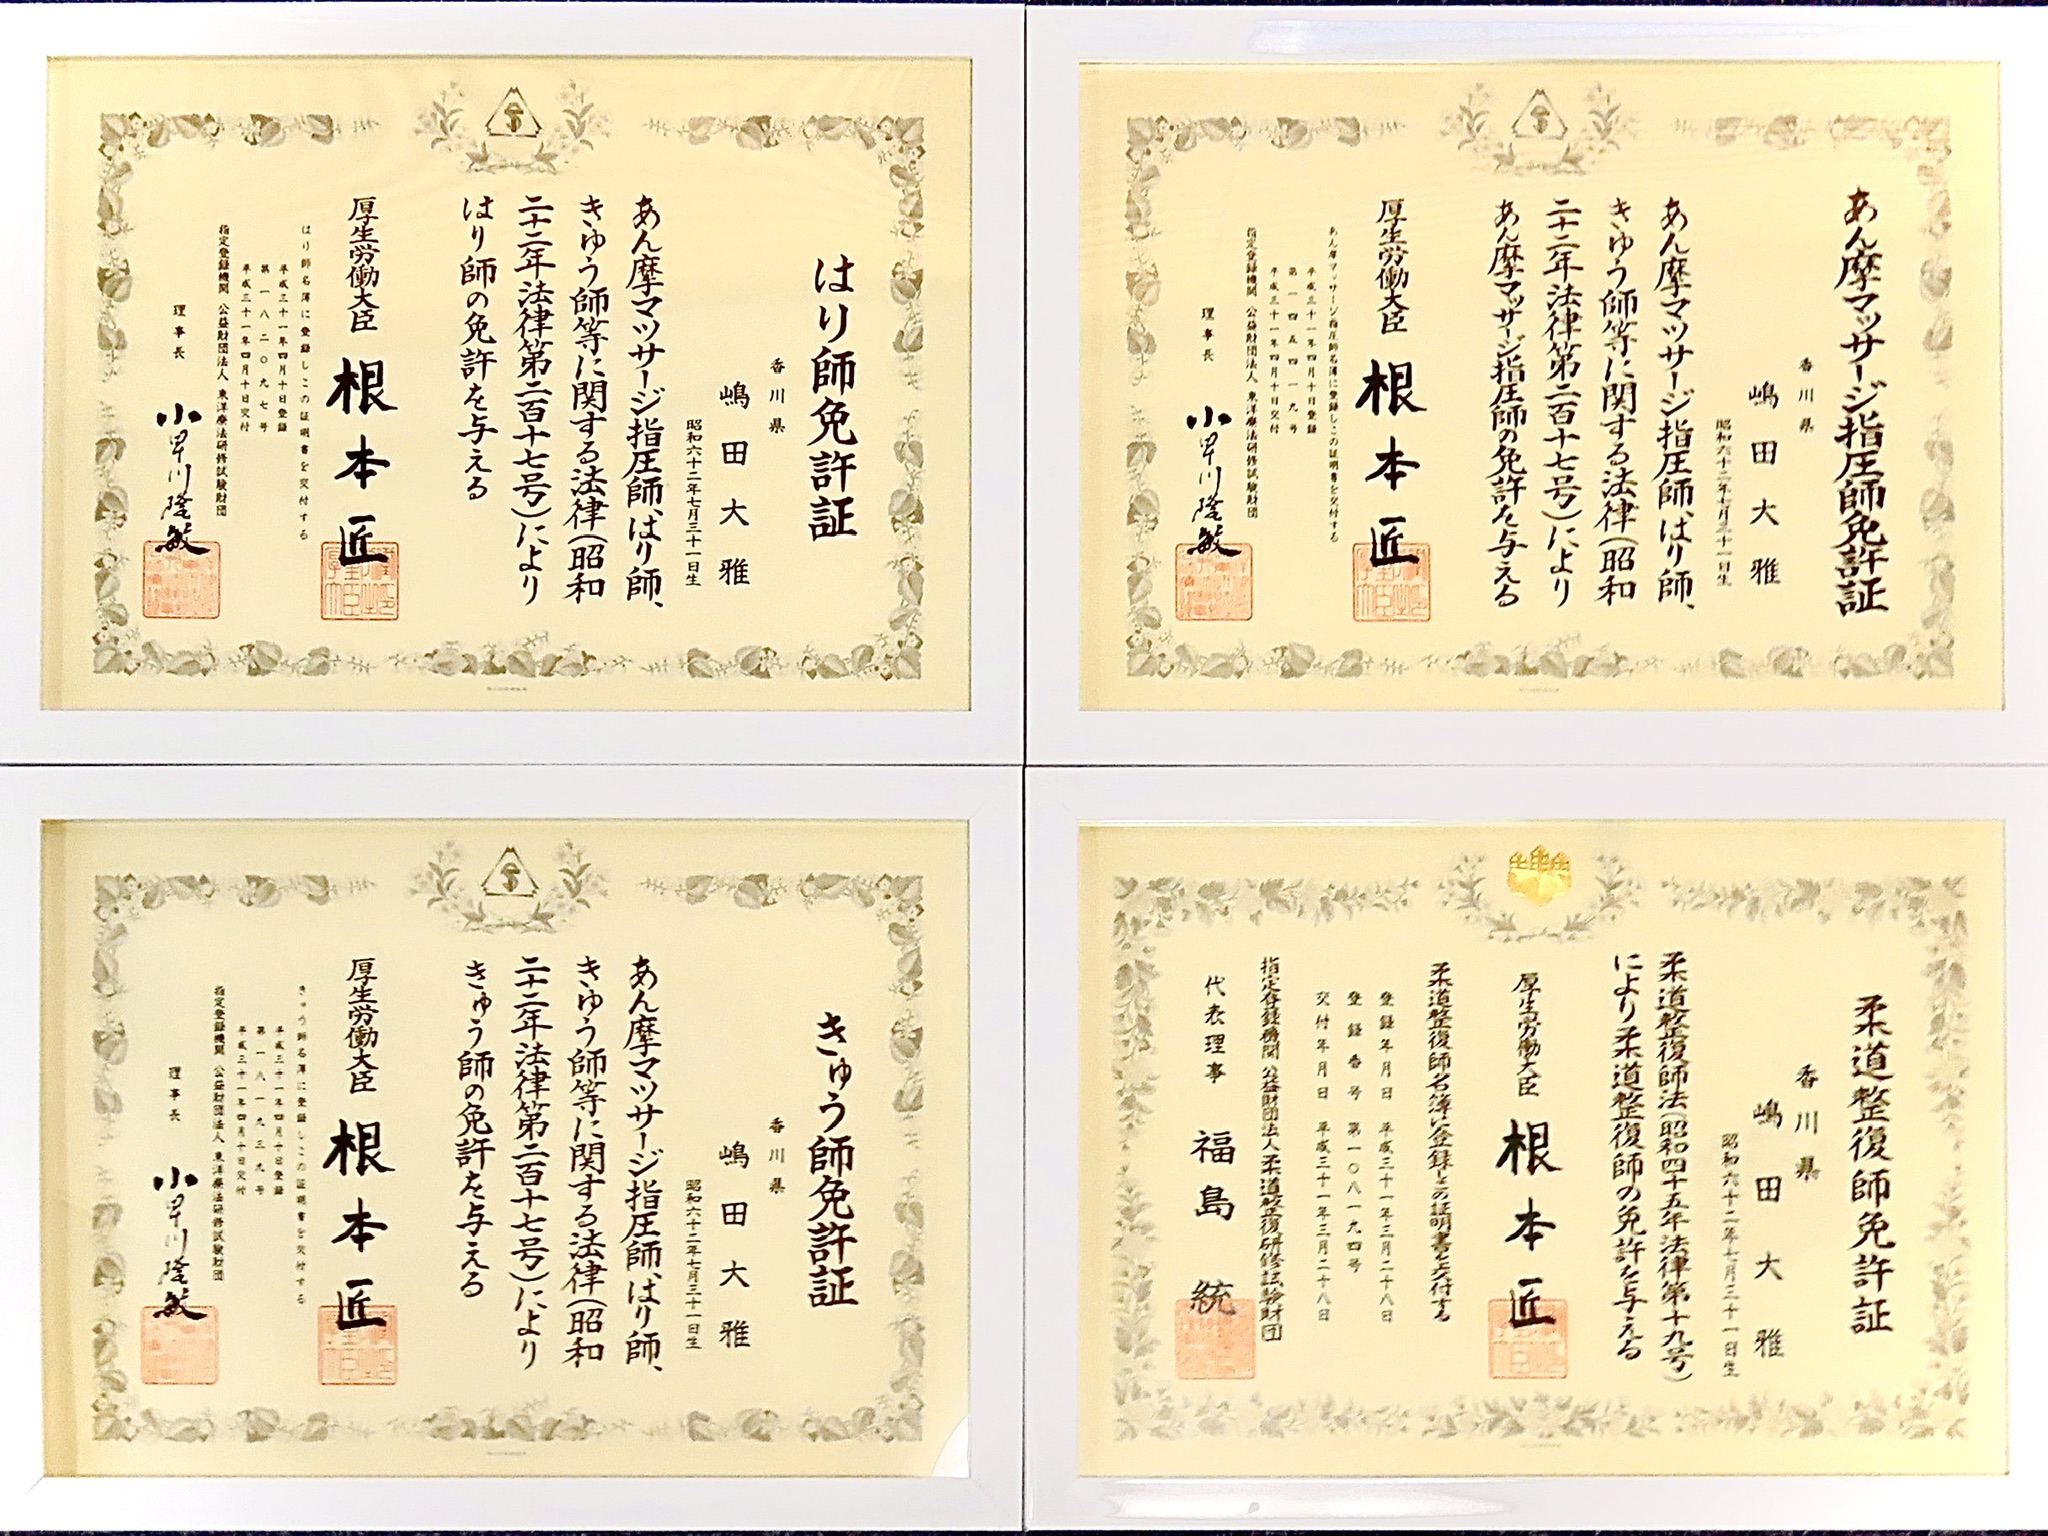 はり師免許証
香川県
嶋田大雅
昭和六十二年七月三十一日生
あん摩マツサージ指圧師、はり師、
きゆう師等に関する法律(昭和
二十二年法律第二百十七号)により
はり師の免許を与える
厚生労働大臣 根本匠
はり師名簿に登録しこの証明書を交付する
平成三十一年四月十日登録
第一八二〇九七号
平成三十一年四月十日交付
指定登録機関 公益財団法人 東洋療法研修試験財団
理事長 小早川隆敏
あん摩マッサージ指圧師免許証
香川県
嶋田大雅
昭和六十二年七月三十一日生
あん摩マツサージ指圧師、はり師、
きゆう師等に関する法律(昭和
二十二年法律第二百十七号)により
あん摩マツサージ指圧師の免許を与える
厚生労働大臣 根本匠
あん摩マッサージ指圧師名簿に登録しこの証明書を交付する
平成三十一年四月十日登録
第一四五四一九号
平成三十一年四月十日交付
指定登録機関 公益財団法人 東洋療法研修試験財団
理事長 小早川隆敏
きゅう師免許証
香川県
嶋田大雅
昭和六十二年七月三十一日生
あん摩マツサージ指圧師、はり師、
きゆう師等に関する法律(昭和
二十二年法律第二百十七号)により
きゅう師の免許を与える
厚生労働大臣 根本匠
きゅう師名簿に登録しこの証明書を交付する
平成三十一年四月十日登録
第一八一九三九号
平成三十一年四月十日交付
指定登録機関 公益財団法人 東洋療法研修試験財団
理事長 小早川隆敏
柔道整復師免許証
香川県
嶋田大雅
昭和六十二年七月三十一日生
柔道整復師法(昭和四十五年法律第十九号)
により柔道整復師の免許を与える
厚生労働大臣 根本匠
柔道整復師名簿に登録しこの証明書を交付する
登録年月日 平成三十一年三月二十八日
登録番号 第一〇八一九四号
交付年月日 平成三十一年三月二十八日
指定登録機関 公益財団法人柔道整復研修試験財団
代表理事 福島統